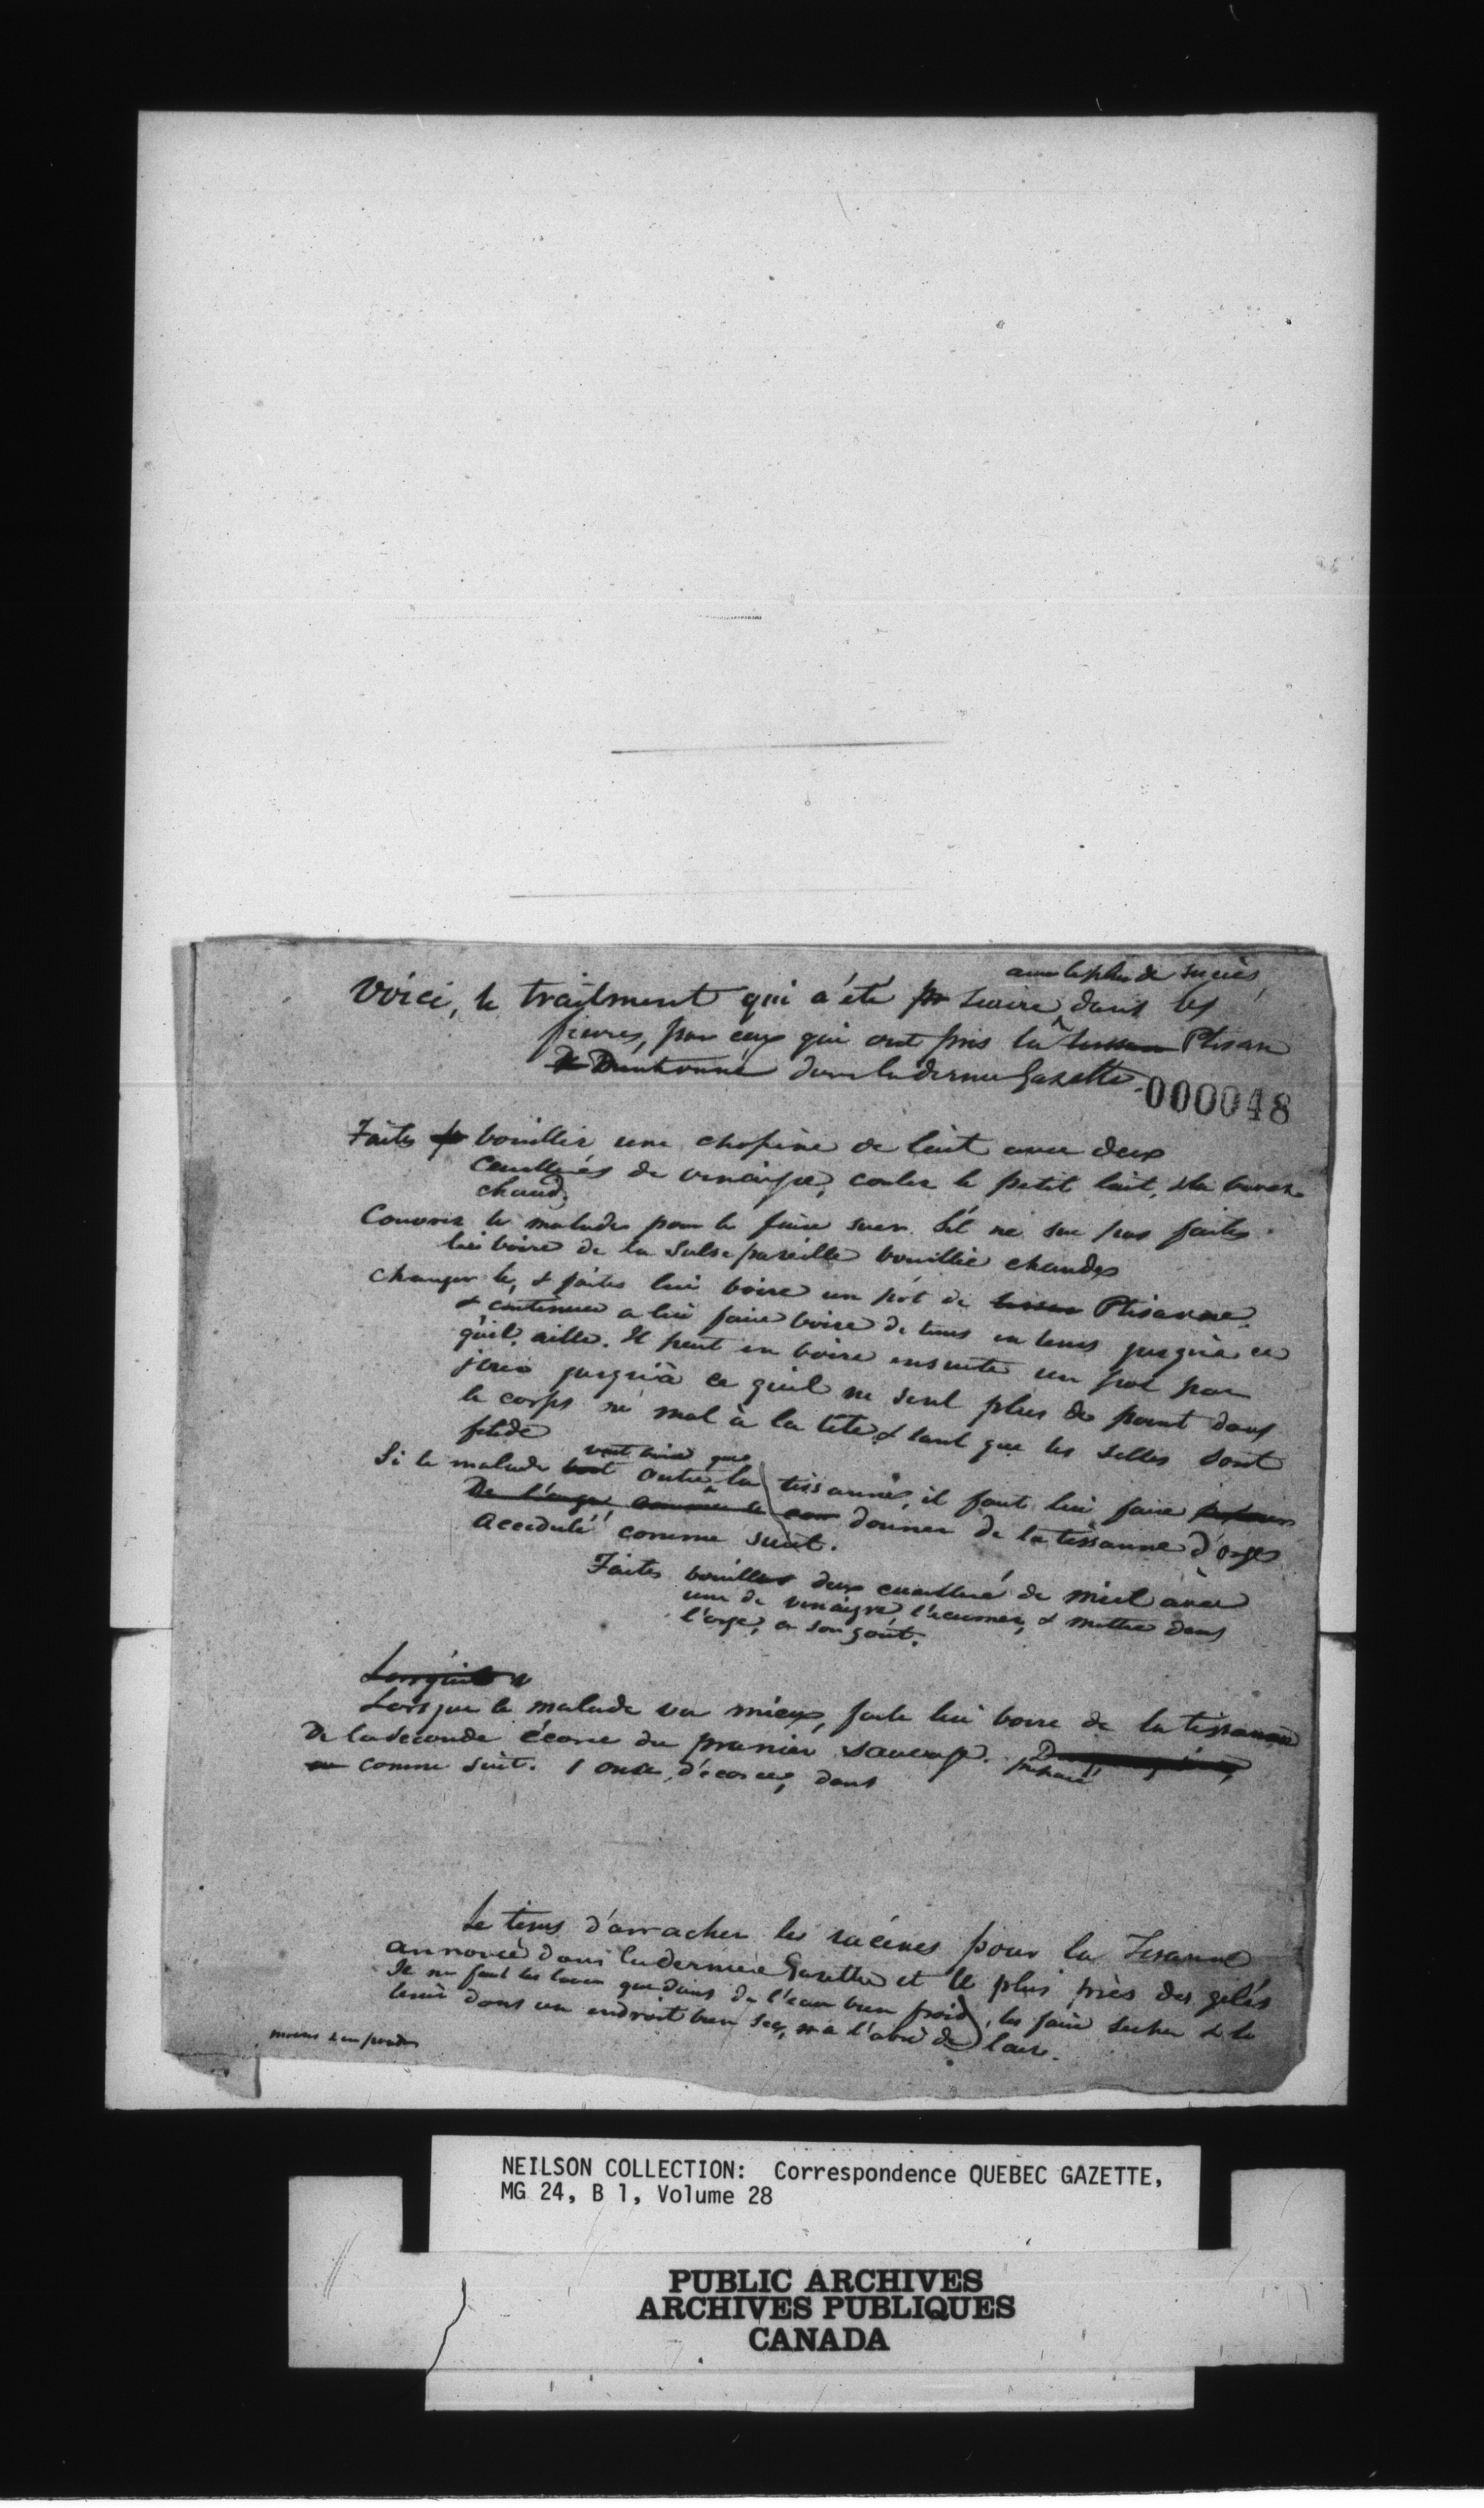 avec le plus de succès,
Voici, le traitment qui a été suivie dans les
fievres, par ceux qui ont pris la Ptisan
dans la derniere Gazette.
000048
Faites bouillir une chopine de lait avec deux
de vinaigre, couler le petit lait,
chaud.
Couvrir le malade pour le faire suer. S'il ne sue pas faites
lui boire de la Salsepareille bouillie chaude
Changer le, & faites lui boire un pot de Ptisanne.
& continuer a lui faire boire de tems en tems jusqu'à ce
qu'il aille. Il peut en boire ensuite un pot par
jour jusqu'à ce quil ne sent plus de point dans
le corps ni mal à la tête & tant que les selles sont
fetide
veut boire que
Si le malade outre la tissanne, il faut lui faire
donner de la tissanne d'orge
accedulé comme suit.
Faites bouiller deux cueilleré de miel avec
une de vinaigre, l'ecumer, & mettre dans
l'orge, a son goût.
Lorsqu'il
Lorsque le malade va mieux, faite lui boire de la tissanne
De la seconde écorce du prunier sauvage.
preparé
comme suit. 1 once d'écorce, dans
Le tems d'arracher les racines pour la Tisanne
annoncé dans la derniere Gazette et le plus près des gelés
Il ne faut les laver que dans de l'eau bien froid, les faire secher & le
tenir dans un endroit bien sec, & a l'abri de l'air.
NEILSON COLLECTION: Correspondence QUEBEC GAZETTE,
MG 24, B 1, Volume 28
PUBLIC ARCHIVES
ARCHIVES PUBLIQUES
CANADA